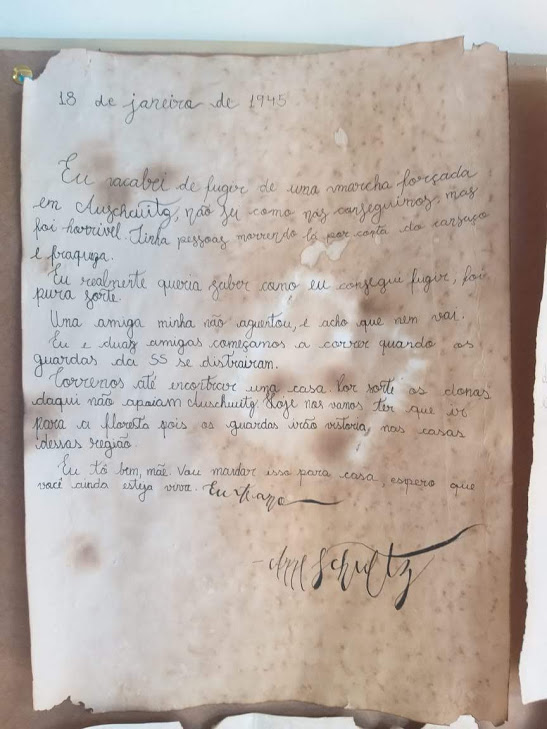 18 de janeiro de 1945
Eu acabei de fugir de uma marcha forçada
em Auschwitz, não sei como nós conseguimos, mas
foi horrível. Tinha pessoas morrendo lá por conta do cansaço
e fraqueza.
Eu realmente queria saber como eu consegui fugir, foi
pura sorte.
Uma amiga minha não aguentou, e acho que nem vai.
Eu e duas amigas começamos a correr quando os
guardas da SS se distrairam.
Corremos até encontrar uma casa. Por sorte os donos
daqui não apoiam Auschwitz. Hoje nós vamos ter que ir
para a floresta pois os guardas irão vistoria, nas casas
dessas região.
Eu tô bem, mãe. Vou mandar isso para casa, espero que
você ainda esteja viva. Eu
Schultz